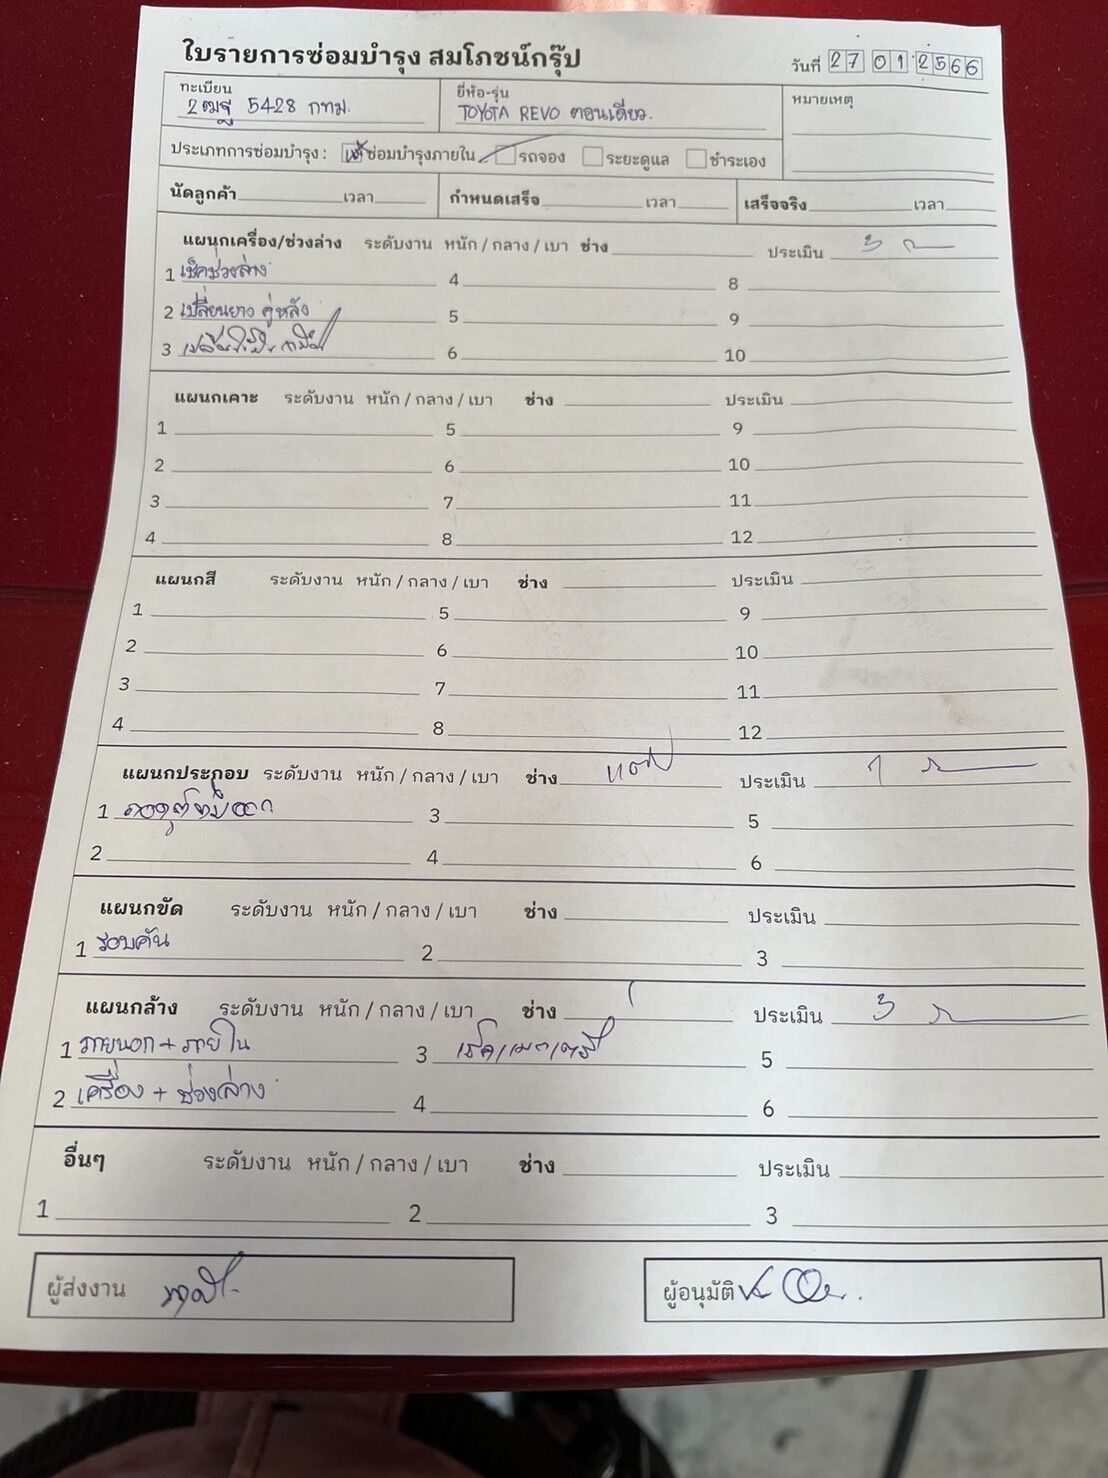 ใบรายการซ่อมบำรุง สมโภชน์กรุ๊ป
วันที่ 27 01 2566
ทะเบียน
2ฒฐ 5428 กทม.
ยี่ห้อ-รุ่น
TOYOTA REVO ตอนเดียว.
หมายเหตุ
ประเภทการซ่อมบำรุง : ซ่อมบำรุงภายใน รถจอง ระยะดูแล ชำระเอง
นัดลูกค้า เวลา กำหนดเสร็จ เวลา เสร็จจริง เวลา
แผนกเครื่อง/ช่วงล่าง ระดับงาน หนัก / กลาง / เบา ช่าง ประเมิน 3
1 เช็คช่วงล่าง 4 8
2 เปลี่ยนยาง คู่หลัง 5 9
3 6 10
แผนกเคาะ ระดับงาน หนัก / กลาง / เบา ช่าง ประเมิน
1 5 9
2 6 10
3 7 11
4 8 12
แผนกสี ระดับงาน หนัก / กลาง / เบา ช่าง ประเมิน
1 5 9
2 6 10
3 7 11
4 8 12
แผนกประกอบ ระดับงาน หนัก / กลาง / เบา ช่าง ประเมิน 1
1 3 5
2 4 6
แผนกขัด ระดับงาน หนัก / กลาง / เบา ช่าง ประเมิน
1 รอบคัน 2 3
แผนกล้าง ระดับงาน หนัก / กลาง / เบา ช่าง ประเมิน 3
1 ภายนอก + ภายใน 3 เช็คแบตเตอรี่ 5
2 เครื่อง + ช่วงล่าง 4 6
อื่นๆ ระดับงาน หนัก / กลาง / เบา ช่าง ประเมิน
1 2 3
ผู้ส่งงาน
ผู้อนุมัติ